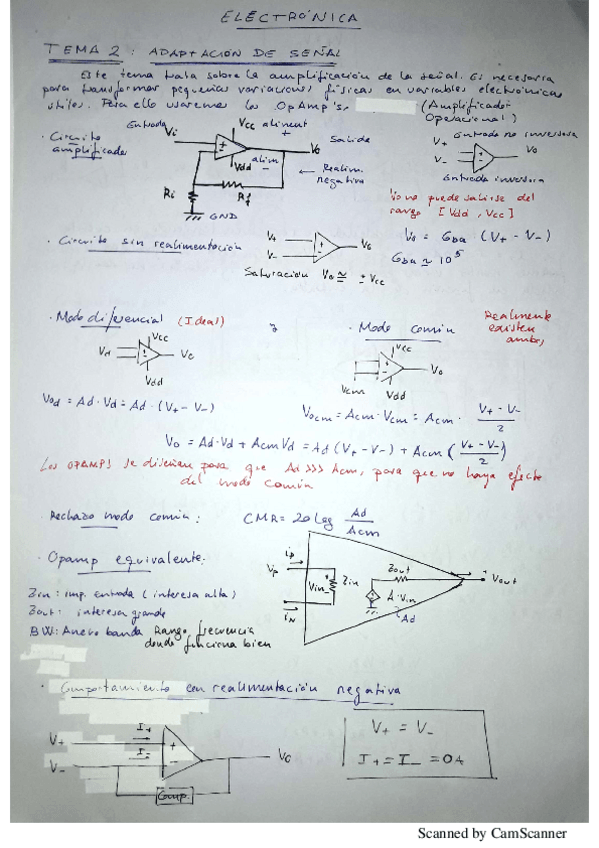 ELECTRÓNICA
TEMA 2: ADAPTACIÓN DE SEÑAL
Este tema trata sobre la amplificación de la señal. Es necesaria
para transformar pequeñas variaciones físicas en variables electrónicas
útiles. Para ello usaremos los OpAmp's. (Amplificador
Operacional)
· Circuito amplificador
Entrada Vi
Vcc aliment +
Salida
Vo
Vdd alim -
← Realim. negativa
Ri
Rf
GND
Entrada no inversora
V+
V-
Vo
Entrada inversora
Vo no puede salirse del
rango [Vdd, Vcc]
· Circuito sin realimentación
V+
V-
Vo
Saturación Vo ≃ ± Vcc
Vo = Gba (V+ - V-)
Gba ≃ 10^5
· Modo diferencial (Ideal) y
· Modo común
Realmente
existen
ambos
Vd
Vcc
Vo
Vdd
Vcm
Vcc
Vo
Vdd
Vod = Ad · Vd = Ad · (V+ - V-)
Vocm = Acm · Vcm = Acm · (V+ - V-)/2
Vo = Ad · Vd + Acm Vd = Ad (V+ - V-) + Acm ((V+ - V-)/2)
Los OPAMPS se diseñan para que Ad >>> Acm, para que no haya efecto
del modo común
· Rechazo modo común: CMR = 20 Log Ad/Acm
· Opamp equivalente:
Zin: imp. entrada (interesa alta)
Zout: interesa grande
BW: Ancho banda Rango frecuencia
donde funciona bien
ip
Vp
Vin
Zin
Zout
A·Vin
Ad
Vout
iN
· Comportamiento con realimentación negativa
V+
I+
I-
V-
Vo
Comp.
V+ = V-
I+ = I- = 0A
Scanned by CamScanner